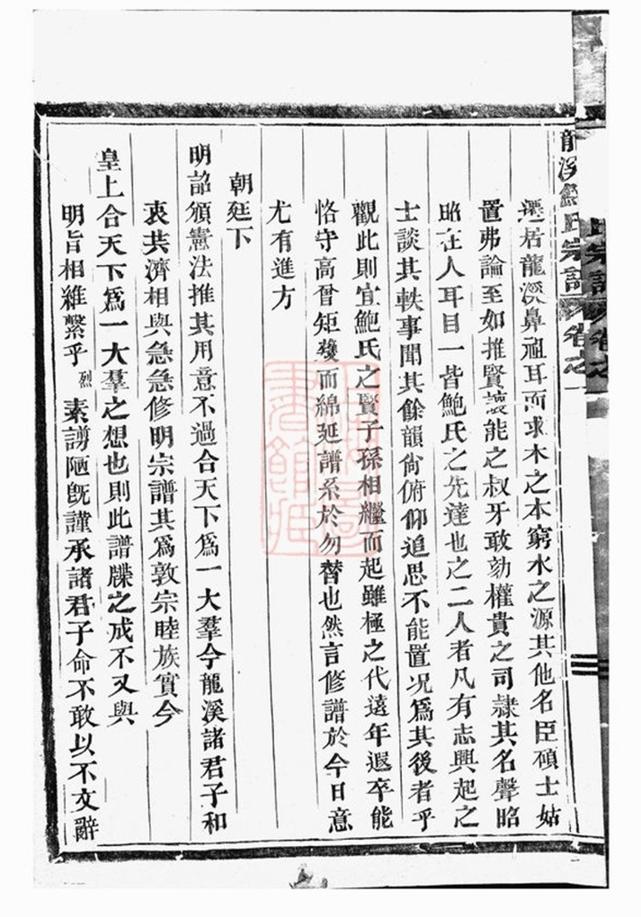 龍溪鮑氏宗譜卷之一
遷居龍溪鼻祖耳而求木之本窮水之源其他名臣碩士姑
置弗論至如推賢讓能之叔牙敢劾權貴之司隸其名聲昭
昭在人耳目一皆鮑氏之先達也之二人者凡有志興起之
士談其軼事聞其餘韻尙俯仰追思不能置况爲其後者乎
觀此則宜鮑氏之賢子孫相繼而起雖極之代遠年遐卒能
恪守高曾矩矱而綿延譜系於勿替也然言修譜於今日意
尤有進方
朝廷下
明詔頒憲法推其用意不過合天下爲一大羣今龍溪諸君子和
衷共濟相與急急修明宗譜其爲敦宗睦族實今
皇上合天下爲一大羣之想也則此譜牒之成不又與
明旨相維繫乎烈素謭陋旣謹承諸君子命不敢以不文辭